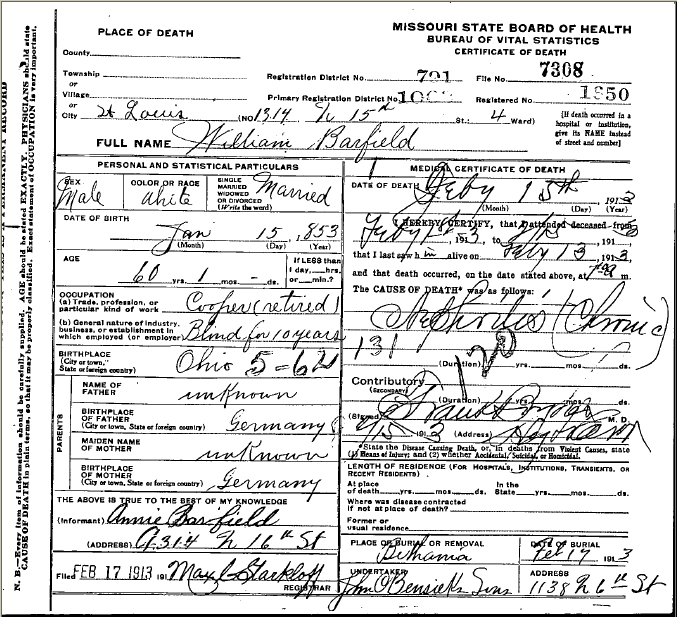 PLACE OF DEATH
MISSOURI STATE BOARD OF HEALTH
BUREAU OF VITAL STATISTICS
CERTIFICATE OF DEATH
County
Township
or
Village
or
City St Louis (NO 1314 N 15th St.; 4 Ward)
Registration District No. 791 File No. 7308
Primary Registration District No. Registered No. 1850
[If death occurred in a hospital or institution, give its NAME instead of street and number]
FULL NAME William Barfield
PERSONAL AND STATISTICAL PARTICULARS
SEX Male
COLOR OR RACE White
SINGLE MARRIED WIDOWED OR DIVORCED (Write the word) Married
DATE OF BIRTH
Jan 15, 853
(Month) (Day) (Year)
AGE
60 yrs. 1 mos. - ds.
If LESS than 1 day, hrs. or min.?
OCCUPATION
(a) Trade, profession, or particular kind of work Cooper (retired)
(b) General nature of industry, business, or establishment in which employed (or employer) Blind for 10 years
BIRTHPLACE (City or town, State or foreign country) Ohio
PARENTS
NAME OF FATHER unknown
BIRTHPLACE OF FATHER (City or town, State or foreign country) Germany
MAIDEN NAME OF MOTHER unknown
BIRTHPLACE OF MOTHER (City or town, State or foreign country) Germany
THE ABOVE IS TRUE TO THE BEST OF MY KNOWLEDGE
(Informant) Annie Barfield
(ADDRESS) N 16th St
Filed FEB 17 1913 191 Max C Starkloff
REGISTRAR
MEDICAL CERTIFICATE OF DEATH
DATE OF DEATH Feby 15th, 1913
(Month) (Day) (Year)
I HEREBY CERTIFY, that I attended deceased from
191 3, to 191 3
that I last saw him alive on Feby 13, 1913,
and that death occurred, on the date stated above, at m.
The CAUSE OF DEATH* was as follows:
Nephritis (Chronic)
131
120
(Duration) yrs. mos. ds.
Contributory
(SECONDARY)
(Duration) yrs. mos. ds.
(Signed) M. D.
191 3 (Address)
*State the Disease Causing Death, or, in deaths from Violent Causes, state (1) Means of Injury; and (2) whether Accidental, Suicidal, or Homicidal.
LENGTH OF RESIDENCE (FOR HOSPITALS, INSTITUTIONS, TRANSIENTS, OR RECENT RESIDENTS)
At place of death yrs. mos. ds. In the State yrs. mos. ds.
Where was disease contracted if not at place of death?
Former or usual residence
PLACE OF BURIAL OR REMOVAL Bethania
DATE OF BURIAL Feb 17 1913
UNDERTAKER John C Bensiek Sons
ADDRESS 1138 N 6th St
N. B.—Every item of information should be carefully supplied. AGE should be stated EXACTLY. PHYSICIANS should state
CAUSE OF DEATH in plain terms, so that it may be properly classified. Exact statement of OCCUPATION is very important.